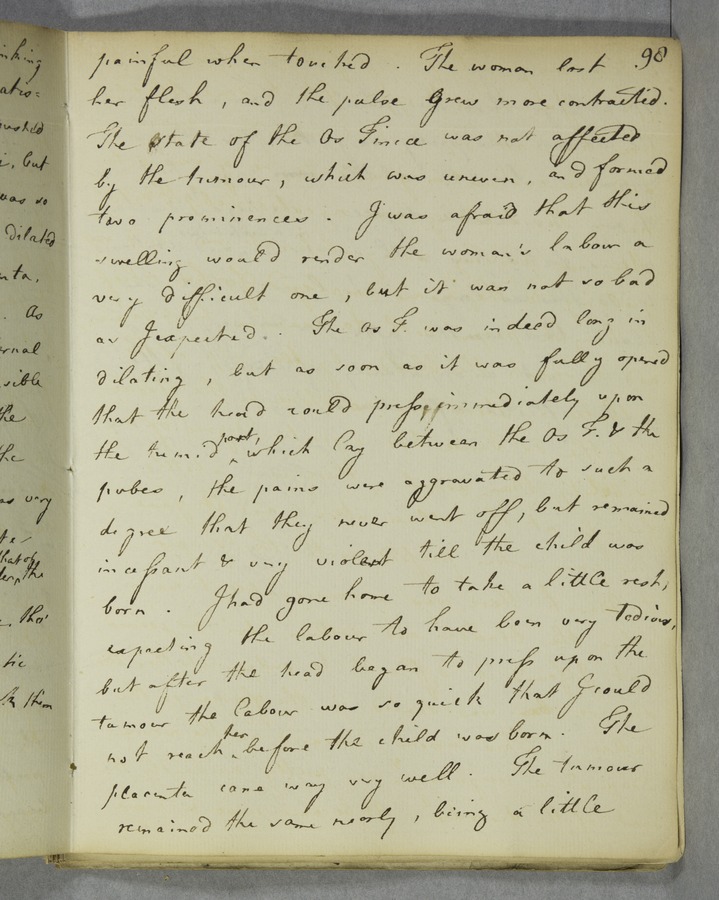 98
painful when touched. The woman lost
her flesh, and the pulse grew more contracted.
The state of the Os Tincæ was not affected
by the tumour, which was uneven, and formed
two prominences. I was afraid that this
swelling would render the woman's labour a
very difficult one, but it was not so bad
as I expected. The Os T. was indeed long in
dilating, but as soon as it was fully opened
that the head could press immediately upon
the tumid part, which lay between the Os T. & the
pubes, the pains were aggravated to such a
degree that they never went off, but remained
incessant & very violent till the child was
born. I had gone home to take a little rest,
expecting the labour to have been very tedious,
but after the head began to press upon the
tumour the labour was so quick that I could
not reach her before the child was born. The
placenta came way very well. The tumour
remained the same nearly, being a little